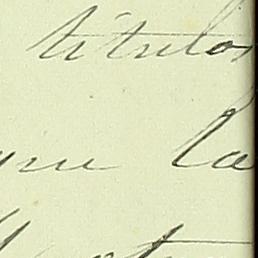 títulos
que la